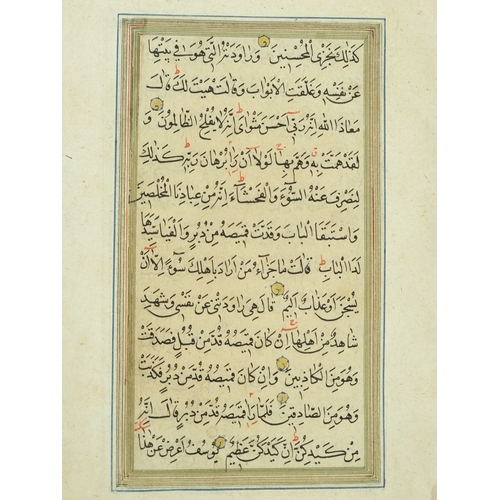 كَذٰلِكَ نَجْزِى الْمُحْسِنِينَ وَرَاوَدَتْهُ الَّتِى هُوَ فِى بَيْتِهَا
عَنْ نَفْسِهِ وَغَلَّقَتِ الْاَبْوَابَ وَقَالَتْ هَيْتَ لَكَ قَالَ
مَعَاذَ اللّٰهِ اِنَّهُ رَبِّى اَحْسَنَ مَثْوَاىَ اِنَّهُ لَا يُفْلِحُ الظَّالِمُونَ وَ
لَقَدْ هَمَّتْ بِهِ وَهَمَّ بِهَا لَوْلَا اَنْ رَاٰ بُرْهَانَ رَبِّهِ كَذٰلِكَ
لِنَصْرِفَ عَنْهُ السُّوٓءَ وَالْفَحْشَآءَ اِنَّهُ مِنْ عِبَادِنَا الْمُخْلَصِينَ
وَاسْتَبَقَا الْبَابَ وَقَدَّتْ قَمِيصَهُ مِنْ دُبُرٍ وَاَلْفَيَا سَيِّدَهَا
لَدَا الْبَابِ قَالَتْ مَا جَزَآءُ مَنْ اَرَادَ بِاَهْلِكَ سُوٓءًا اِلَّآ اَنْ
يُسْجَنَ اَوْ عَذَابٌ اَلِيمٌ قَالَ هِىَ رَاوَدَتْنِى عَنْ نَفْسِى وَشَهِدَ
شَاهِدٌ مِنْ اَهْلِهَا اِنْ كَانَ قَمِيصُهُ قُدَّ مِنْ قُبُلٍ فَصَدَقَتْ
وَهُوَ مِنَ الْكَاذِبِينَ وَاِنْ كَانَ قَمِيصُهُ قُدَّ مِنْ دُبُرٍ فَكَذَبَتْ
وَهُوَ مِنَ الصَّادِقِينَ فَلَمَّا رَاٰ قَمِيصَهُ قُدَّ مِنْ دُبُرٍ قَالَ اِنَّهُ
مِنْ كَيْدِكُنَّ اِنَّ كَيْدَكُنَّ عَظِيمٌ يُوسُفُ اَعْرِضْ عَنْ هٰذَا